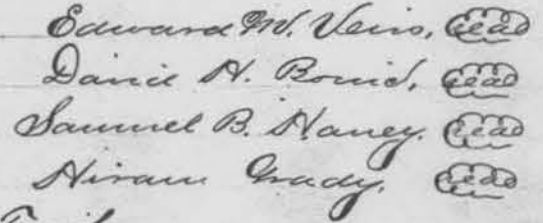 Edward M. Veirs, Seal
David H. Bouic, Seal
Samuel B. Haney. Seal
Hiram Grady. Seal